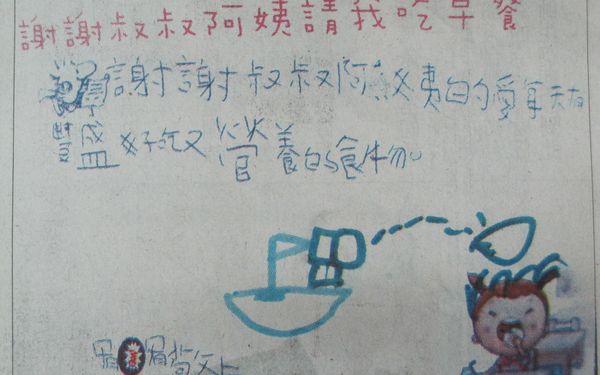 謝謝叔叔阿姨請我吃早餐
謝謝叔叔阿姨的愛拿天有
豐盛好吃又營養的食物。
上